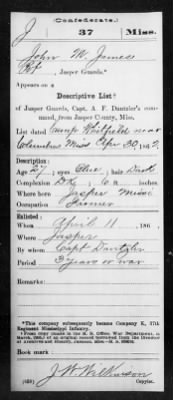 (Confederate.)
J 37 Miss.
John W. James
Pvt, Jasper Guards.*
Appears on a
Descriptive List†
of Jasper Guards, Capt. A. F. Dantzler's command, from Jasper County, Miss.
List dated Camp Whitfield near
Columbus Miss Apr 30, 1862.
Description:
Age 27; eyes Blue; hair Dark
Complexion Drk; 6 ft inches.
Where born Jasper Miss
Occupation Farmer
Enlisted:
When April 11, 186
Where Jasper
By whom Capt Dantzler
Period 3 years or war
Remarks:
*This company subsequently became Company K, 37th
Regiment Mississippi Infantry.
Book mark:
J. W. Wilkinson
Copyist.